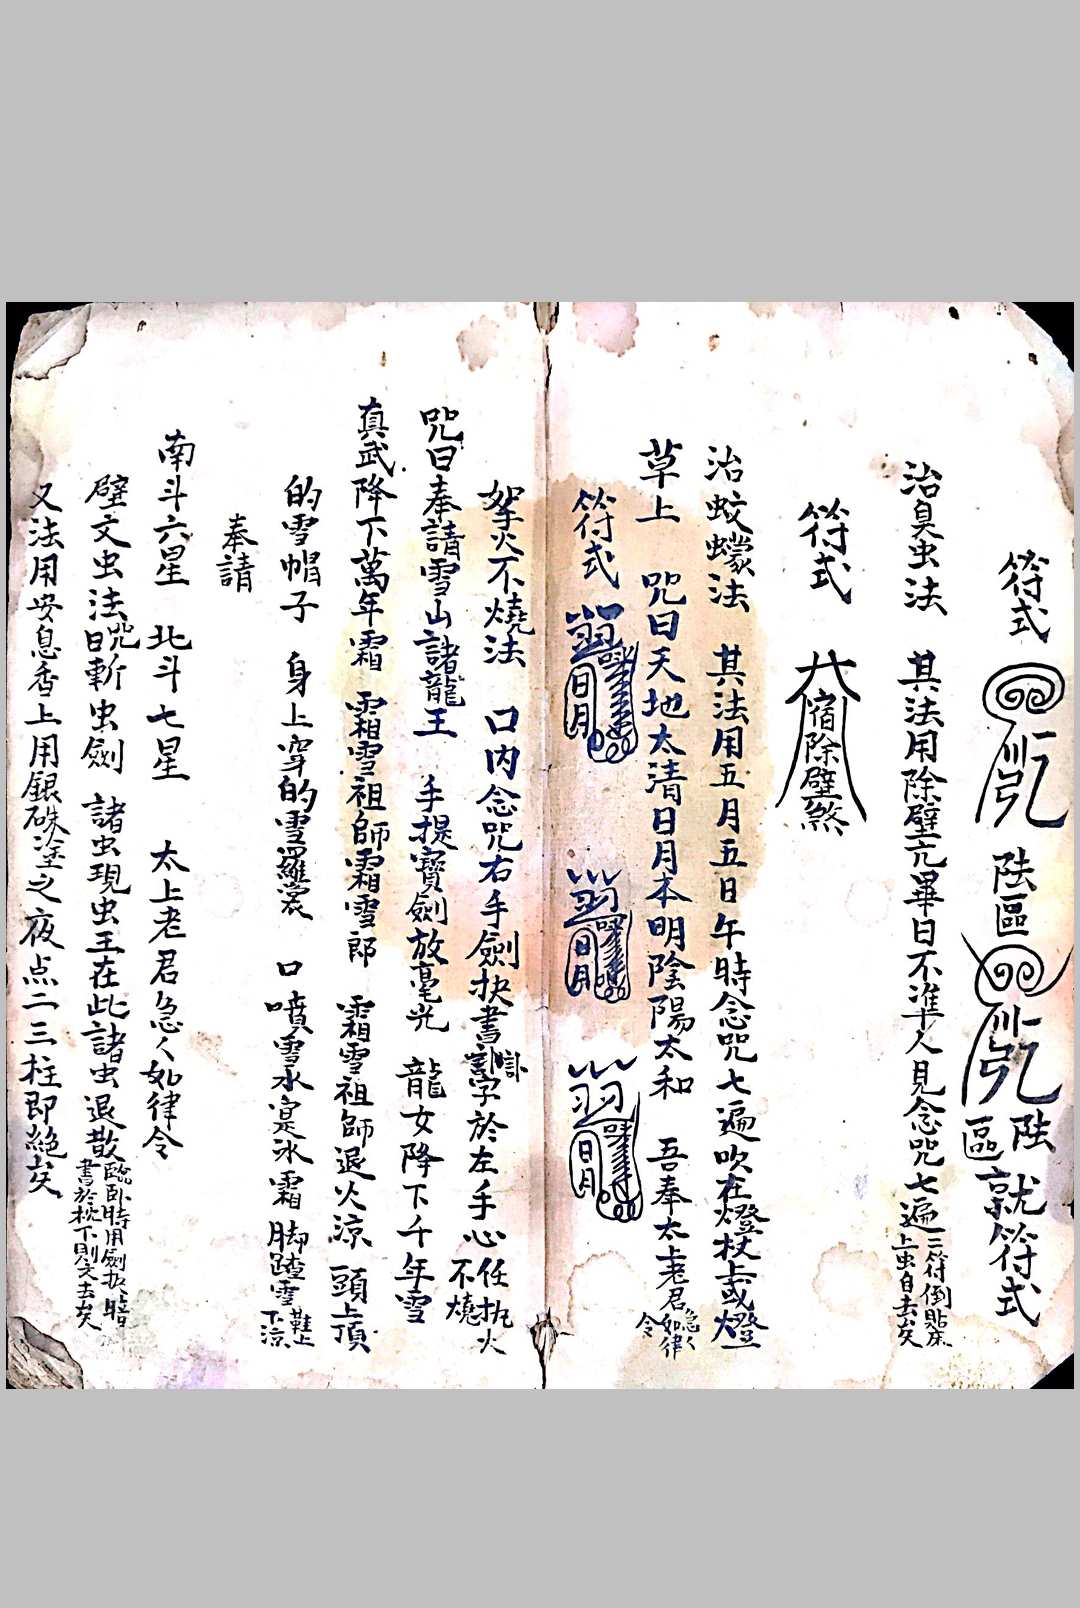 符式
陡區
陡區就符式
治臭虫法　其法用除壁亢畢日不準人見念咒七遍三符倒貼床上虫自去矣
符式　宿除壁煞
治蚊蠓法　其法用五月五日午時念咒七遍吹在燈杖上或燈
草上　咒曰天地太清日月本明陰陽太和　吾奉太上老君急〻如律令
符式　日月　日月　日月
拏火不燒法　口内念咒右手劍抉書字於左手心任扎火不燒
咒曰奉請雪山諸龍王　手提寶劍放毫光　龍女降下千年雪
真武降下萬年霜　霜雪祖師霜雪郎　霜雪祖師退火涼　頭上頂
的雪帽子　身上穿的雪羅裳　口噴雪水寔氷霜　脚踏雪鞋上下涼
奉請
南斗六星　北斗七星　太上老君急〻如律令
壁文虫法咒曰斬虫劍　諸虫現虫王在此諸虫退散臨卧時用劍抉書於枕下則文去矣
又法用安息香上用銀硃塗之夜点二三柱即絶矣